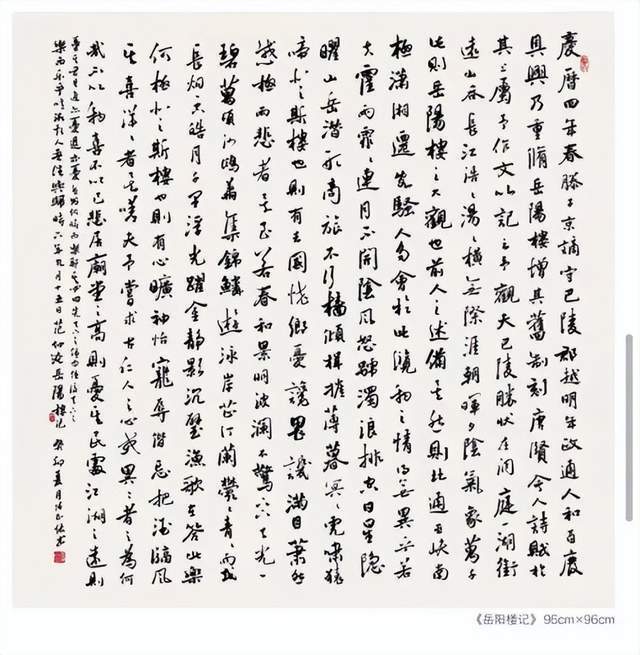 慶曆四年春滕子京謫守巴陵郡越明年政通人和百廢
具興乃重脩岳陽樓增其舊制刻唐賢今人詩賦於
其上屬予作文以記之予觀夫巴陵勝狀在洞庭一湖銜
遠山吞長江浩〻湯〻橫無際涯朝暉夕陰氣象萬千
此則岳陽樓之大觀也前人之述備矣然則北通巫峽南
極瀟湘遷客騷人多會於此覽物之情得無異乎若
夫霪雨霏〻連月不開陰風怒號濁浪排空日星隱
曜山岳潛形商旅不行檣傾楫摧薄暮冥〻虎嘯猿
啼登斯樓也則有去國懷鄉憂讒畏譏滿目蕭然
感極而悲者矣至若春和景明波瀾不驚上下天光一
碧萬頃沙鷗翔集錦鱗遊泳岸芷汀蘭鬱〻青〻而或
長煙一空皓月千里浮光躍金靜影沉璧漁歌互答此樂
何極登斯樓也則有心曠神怡寵辱偕忘把酒臨風
其喜洋〻者矣嗟夫予嘗求古仁人之心或異二者之為何
哉不以物喜不以己悲居廟堂之高則憂其民處江湖之遠則
憂其君是進亦憂退亦憂然則何時而樂耶其必曰先天下之憂而憂後天下之
樂而樂乎噫微斯人吾誰與歸時六年九月十五日范仲淹岳陽樓記 癸卯夏月
《岳阳楼记》 96cm×96cm